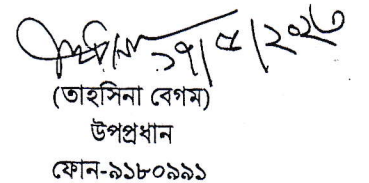 ১৭/৫/২০২৩
(তাহসিনা বেগম)
উপপ্রধান
ফোন-৯১৮০৯৯১